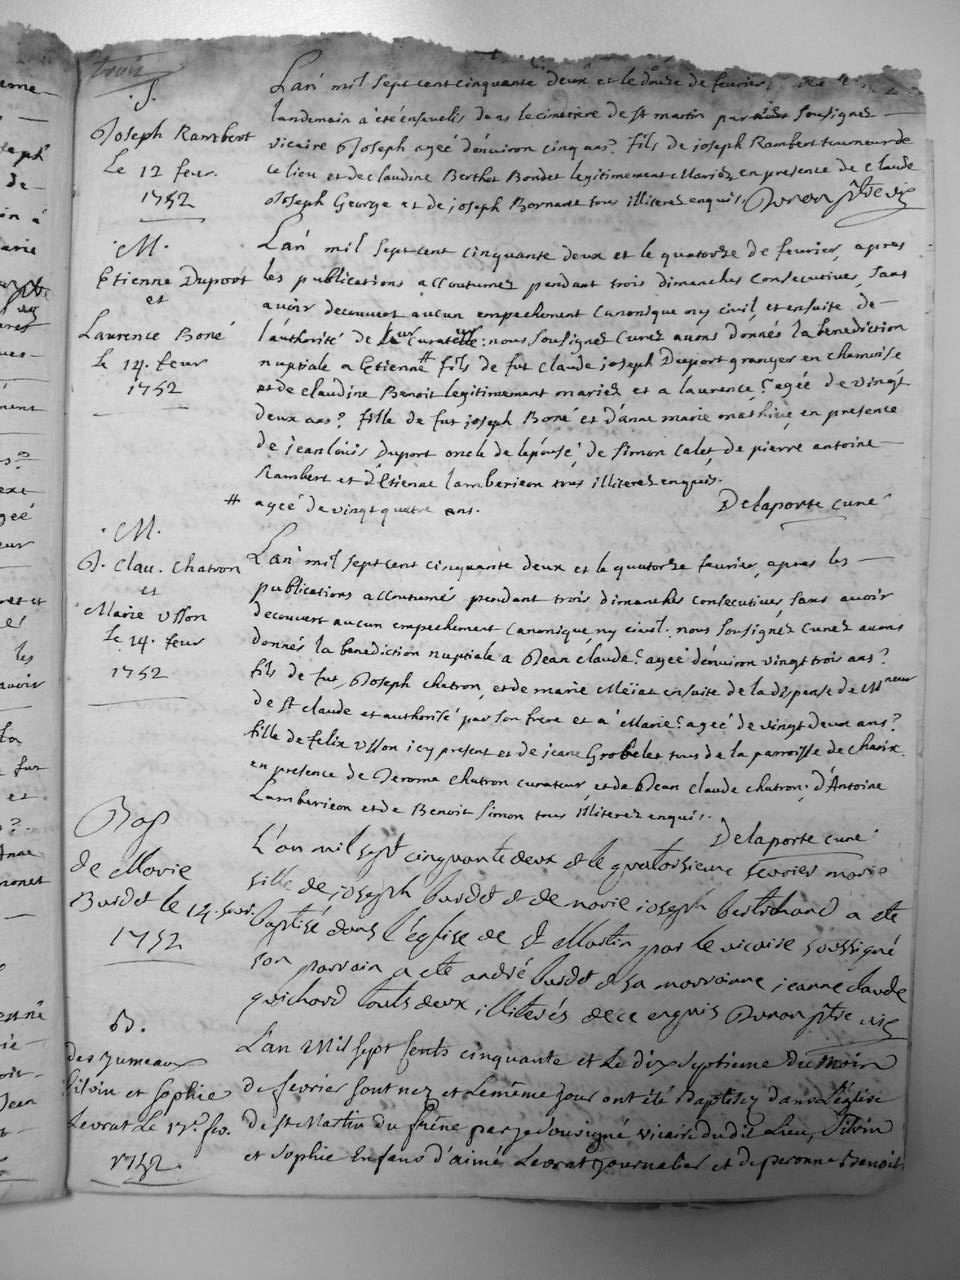 trois
.S.
Joseph Rambert
Le 12 feur.
1752
Lan mil sept cent cinquante deux et le douze de fevrier,
landemain a été énsevelis dans le cimetiere de st martin par nous soussignez
vicaire Joseph ageé denviron cinq ans? fils de joseph Rambert tourneur de
ce lieu et de claudine Berthet Bondet legitimement Mariez en presence de Claude
Joseph George et de joseph Bornant tous illiterez enquis
.M.
Etienne Duport
et
Laurence Boné
le 14. feur
1752
Lan mil sept cent cinquante deux et le quatorze de fevrier, apres
les publications accoutumez pendant trois dimanches Consecutives, sans
avoir decouvert aucun empechement Canonique ny civil et ensuite de
lauthorité de leur curateur: nous soussignez Curez avons donnés la benediction
nuptiale a Etienne # fils de fut Claude joseph Duport granger en chamoise
et de claudine Benoit legitimement mariez et a laurence? ageé de vingt
deux ans? fille de fut joseph Boné et d'anne marie mathieu, en presence
de jean louis Duport oncle de lépousé, de Simon Calet, de pierre antoine
Rambert et d'Etienne lamberieon tous illiterez enquis.
# ageé de vingt quatre ans.
Delaporte Curé
.M.
J. Clau. Chatron
et
Marie Usson
le 14. feur
1752
Lan mil sept cent cinquante deux et le quatorze feuvrier, apres les
publications accoutumés pendant trois dimanches consecutives, sans avoir
decouvert aucun empechement Canonique, ny civil. nous soussignez Curez avons
donnés la benediction nuptiale a Jean claude? ageé denviron vingt trois ans?
fils de fut Joseph chatron, et de marie Meïat ensuite de la dispense de Mgneur
de St claude et authorisé par son frere et a Marie? ageé de vingt deux ans?
fille de felix Usson icy present et de jeane Grobelet tous de la parroisse de Chaix.
en presence de Jerome chatron curateur, et de Jean claude chatron, d'Antoine
Lamberieon et de Benoit Simon tous illiterez enquis.
Delaporte curé
Bap
de Marie
Burdet le 14. fevr.
1752
L'an mil sept cinquante deux et le quatorsieme fevrier marie
fille de joseph burdet et de marie joseph bertrhand a ete
baptisé dans l'église de St Martin par le vicaire soussigné
son parrain a ete andré burdet et sa marrainne jeanne claude
guichard touts deux illiterés de ce enquis
B.
des Jumeaux
Silvin et Sophie
Levrat Le 17e fev.
1752
Lan Mil sept sents cinquante et Le dix septieme Du moin
de fevrier sont nez et Lememe jour ont été Baptisez dans L'église
de st Martin du frêne par je soussigné vicaire du dit Lieu, Silvin
et Sophie Enfans d'aimé Levrat journalier et de peronne Benoit